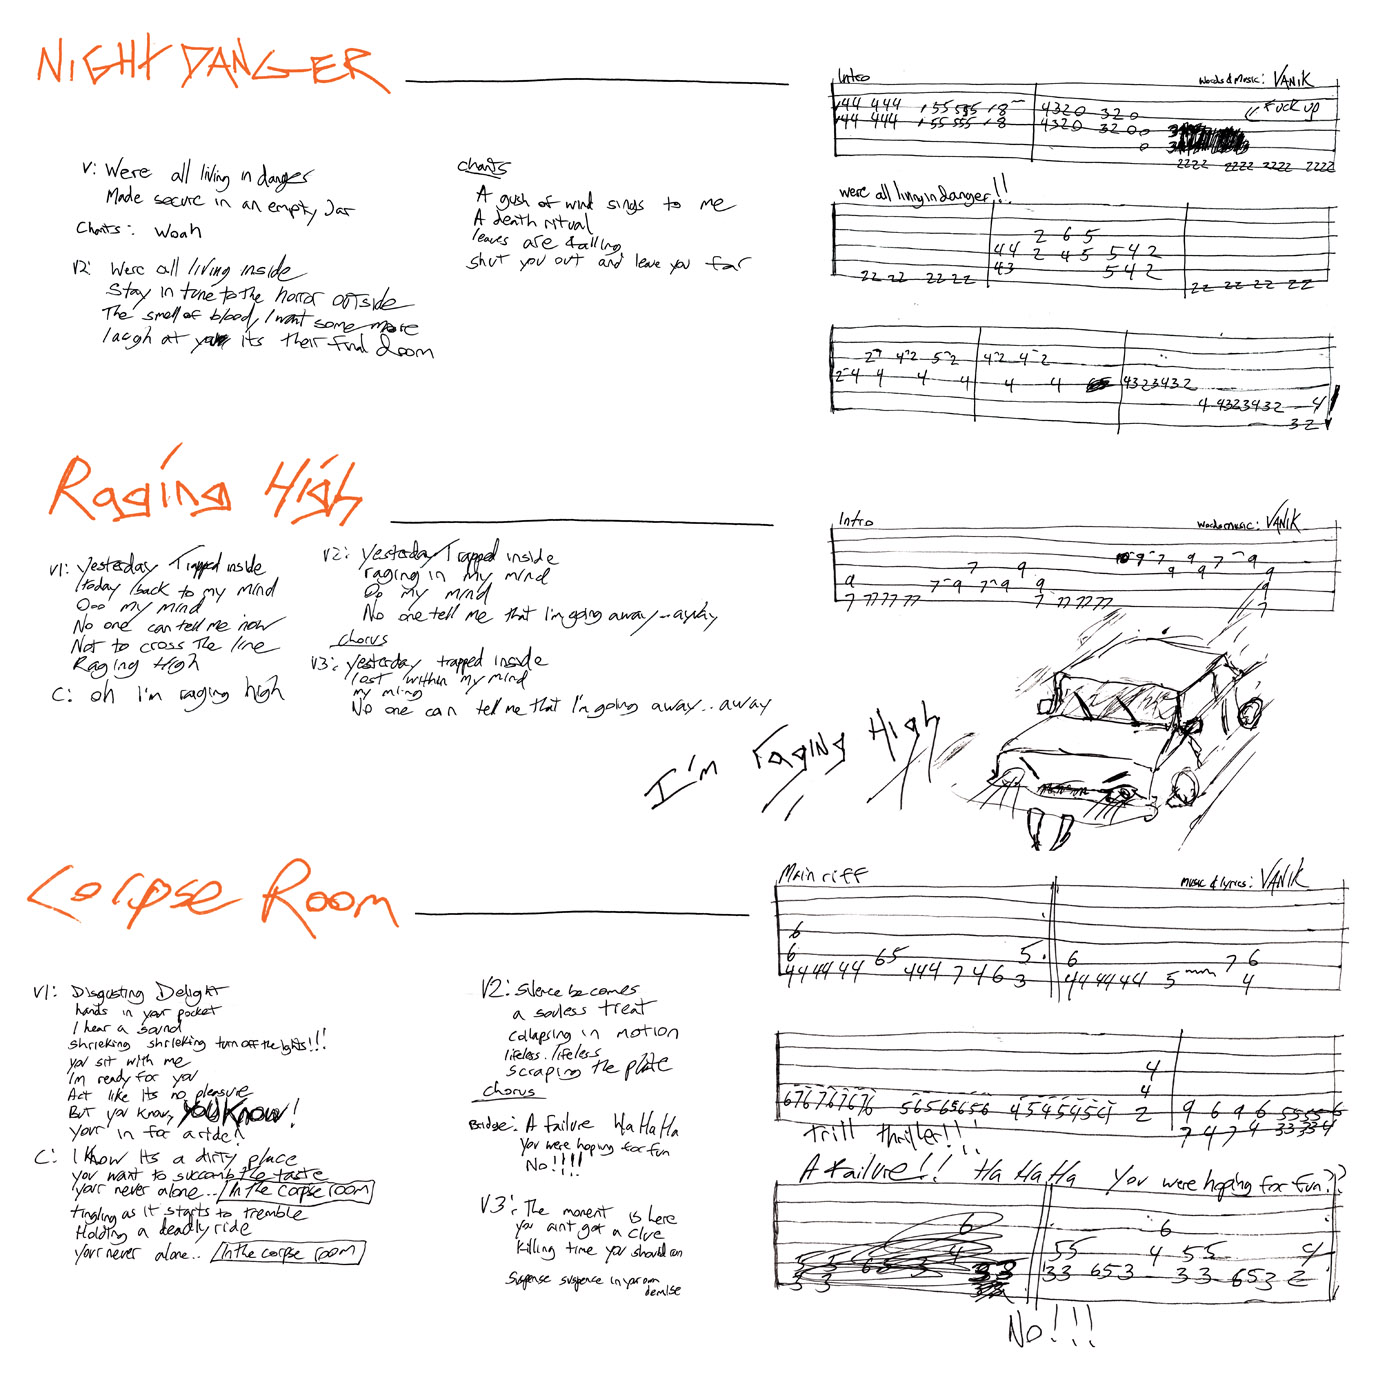 NIGHT DANGER
Intro
Words & Music: VANIK
Fuck up
V: Were all living in danger
Made secure in an empty Jar
Chants: Woah
V2: Were all living inside
Stay in tune to the horror outside
The smell of blood, I want some more
laugh at you its their final doom
chants
A gush of wind sings to me
A death ritual
leaves are falling
shut you out and leave you far
144 444 155 555 18 4320 320
144 444 155 555 18 4320 3200
0
2222 2222 2222 2222
were all living in danger!!
2 6 5
44 2 4 5 5 4 2
43 5 4 2
22 22 22 22 22 22 22 22
2 4-2 5-2 4-2 4-2
2-4 4 4 4 4 4 4323432
4 4323432 4
32
Raging High
Intro
Words music: VANIK
V1: Yesterday Trapped inside
today back to my mind
Ooo my mind
No one can tell me now
Not to cross the line
Raging High
C: oh I'm raging high
V2: Yesterday Trapped inside
raging in my mind
Oo my mind
No one tell me that I'm going away...away
chorus
V3: yesterday trapped inside
lost within my mind
my ming
No one can tell me that I'm going away..away
9-7 9 7-9
7 9 9 9 9
9 7-9 7-9 9 9
7 77 77 77 7 77 77 77 7
I'm raging High
Corpse Room
Main riff
Music & lyrics: VANIK
V1: Disgusting Delight
hands in your pocket
I hear a sound
shrieking shrieking turn off the lights!!!
you sit with me
I'm ready for you
Act like its no pleasure
But you know, you know!
your in for a ride!
C: I know its a dirty place
you want to succumb the taste
your never alone... In the corpse room
tingling as it starts to tremble
Holding a deadly ride
your never alone.. In the corpse room
V2: Silence becomes
a souless treat
collapsing in motion
lifeless.lifeless
scraping the plate
chorus
Bridge: A failure Ha Ha Ha
You were hoping for fun
No!!!!
V3: The moment is here
you aint got a clue
Killing time you should run
suspense suspense in your own
demise
6
6 65 5 6 7 6
44 44 44 444 7 4 6 3 44 44 44 5 4
4
4
67676767676 565656565 45454545 2 9 6 9 6 55 55 6
7 4 7 4 33 33 4
trill thriller!!!
A failure!! Ha Ha Ha You were hoping for fun??
6 6
4 55 4 55 4
33 653 33 653 2
No!!!